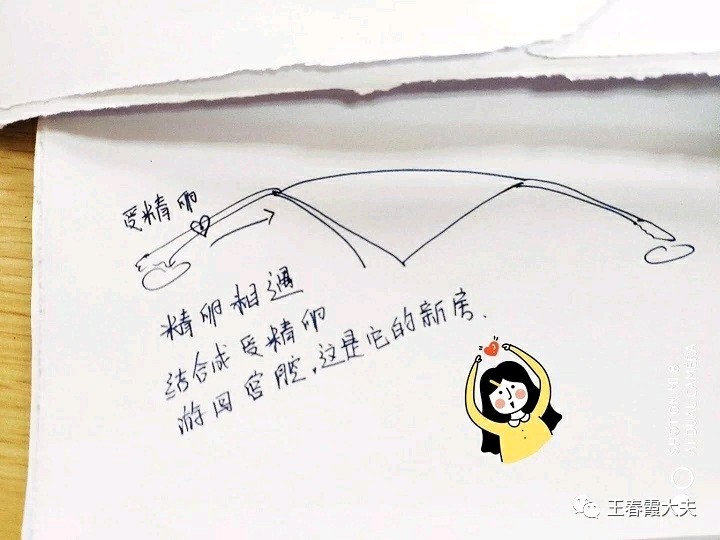 受精卵
精卵相遇
结合成受精卵
游回宫腔,这是它的新房.
SHOT ON MI 8
AI DUAL CAMERA
王春霞大夫